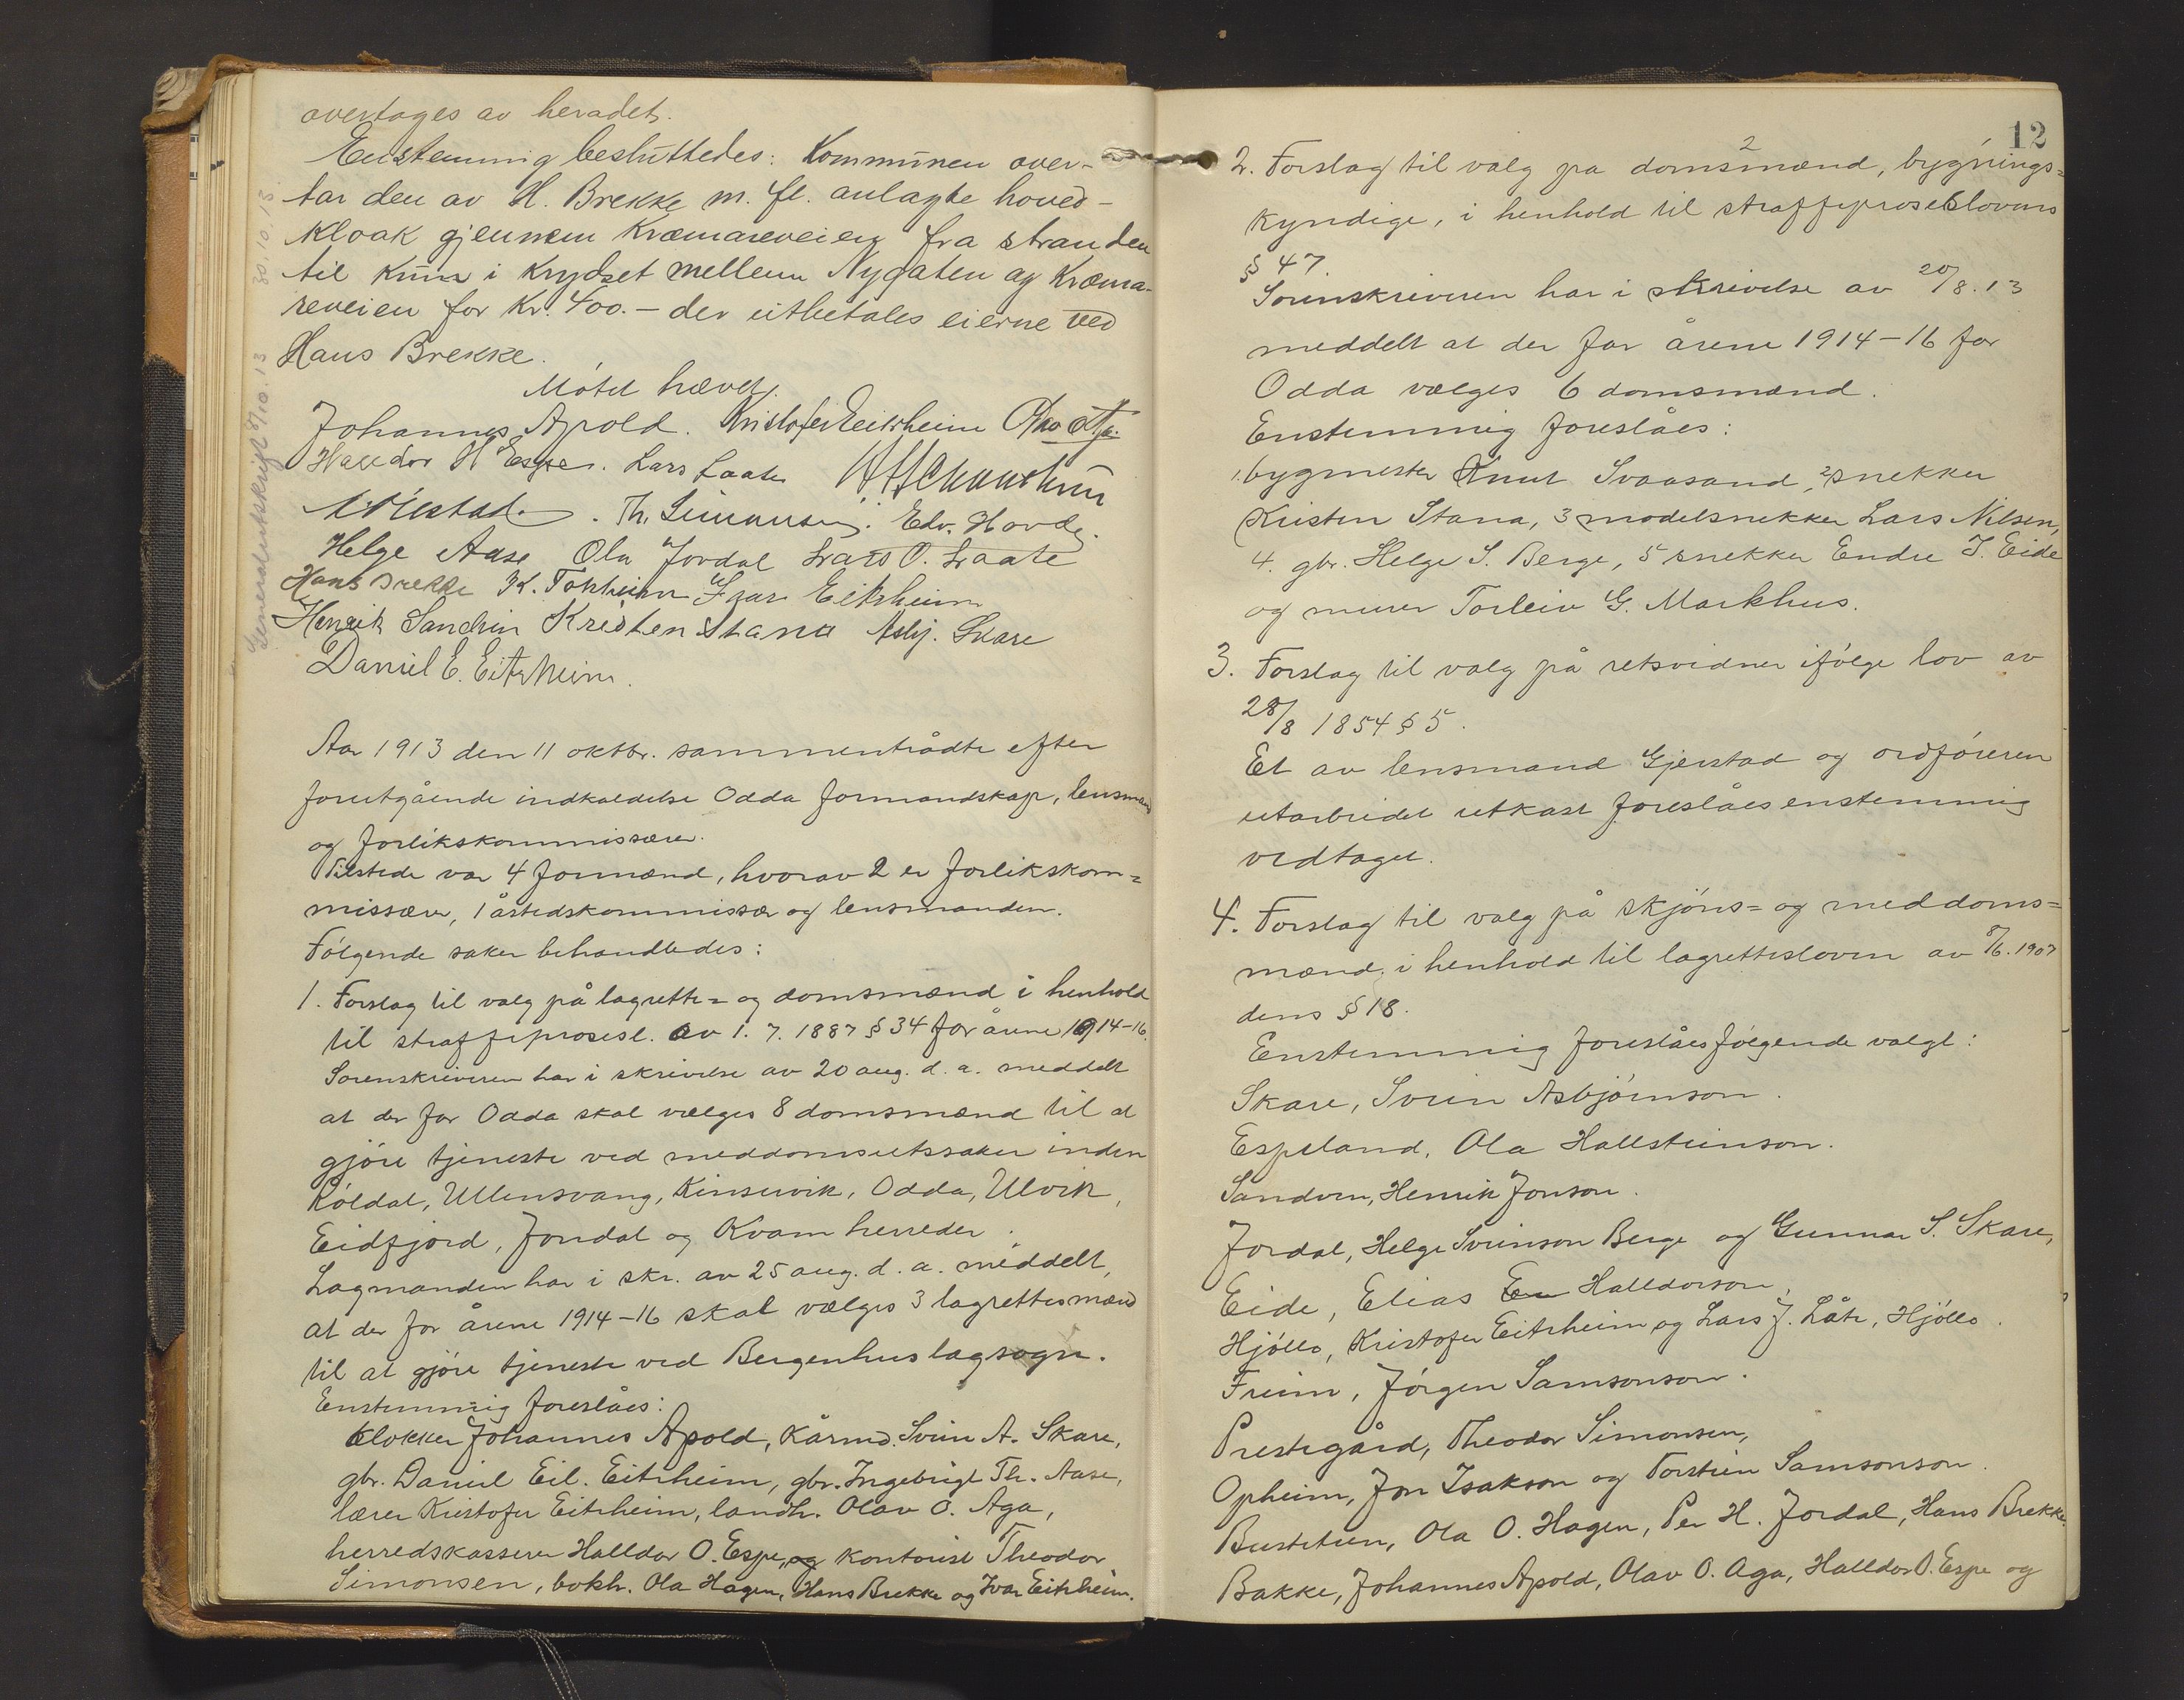 overtages av heradet.
Enstemmig besluttedes: Kommunen over-
tar den av H. Brekke m. fl. anlagte hoved-
kloak gjennem Kræmareveien fra stranden
til kum i krydset mellem Nygaten og Kræma-
reveien for Kr. 400.- der utbetales eierne ved
Hans Brekke.
Møtet hævet.
Johannes Apold. Kristofer Eitrheim
Halldor H Espe. Lars Laate
Th. Simonsen. Edv. Hovde.
Helge Aase Ola Jordal Lars O. Laate
Hans Brekke K. Tokheim Ivar Eitrheim
Henrik Sandvin Kristen Stana Asbj. Skare
Daniel E. Eitrheim.
Generalutskrift 8/10.13 30.10.13
Aar 1913 den 11 oktbr. sammentrådte efter
forutgående indkaldelse Odda formandskap, lensmand
og forlikskommissærer.
Tilstede var 4 formænd, hvorav 2 er forlikskom=
missærer, 1 åstedskommissær og lensmanden.
Følgende saker behandledes:
1. Forslag til valg på lagrette= og domsmænd i henhold
til straffeprosesl. av 1. 7. 1887 § 34 for årene 1914-16.
Sorenskriveren har i skrivelse av 20 aug. d. a. meddelt
at der for Odda skal vælges 8 domsmænd til at
gjøre tjeneste ved meddomsretssaker inden
Røldal, Ullensvang, Kinservik, Odda, Ulvik,
Eidfjord, Jondal og Kvam herreder.
Lagmanden har i skr. av 25 aug. d. a. meddelt,
at der for årene 1914-16 skal vælges 3 lagrettesmænd
til at gjøre tjeneste ved Bergenhus lagsogn.
Enstemmig foreslåes:
klokker Johannes Apold, kårmd. Svein A. Skare,
gbr. Daniel Eil. Eitrheim, gbr. Ingebrigt Th. Aase,
lærer Kristofer Eitrheim, landh. Olav O. Aga,
herredskasserer Halldor O. Espe, og kontorist Theodor
Simonsen, bokh. Ola Hagen, Hans Brekke og Ivar Eitrheim.
12
2. Forslag til valg pa 2 domsmænd, bygnings=
kyndige, i henhold til straffeproseslovens
§ 47.
Sorenskriveren har i skrivelse av 20/8.13
meddelt at der for årene 1914-16 for
Odda vælges 6 domsmænd.
Enstemmig foreslåes:
1. bygmester Knut Svaasand, 2 snekker
Kristen Stana, 3 modelsnekker Lars Nilsen,
4. gbr. Helge S. Berge, 5 snekker Endre J. Eide
og murer Torleiv G. Markhus.
3. Forslag til valg på retsvidner ifølge lov av
28/8 1854 § 5.
Et av lensmand Gjerstad og ordføreren
utarbeidet utkast foreslåes enstemmig
vedtaget.
4. Forslag til valg på skjøns= og meddoms=
mænd i henhold til lagrettesloven av 8/6.1907
dens § 18.
Enstemmig foreslåes følgende valgt:
Skare, Svein Asbjørnson.
Espeland, Ola Hallsteinson.
Sandven, Henrik Jonson.
Jordal, Helge Sveinson Berge og Gunnar S. Skare,
Eide, Elias Halldorson,
Hjøllo, Kristofer Eitrheim og Lars J. Låte, Hjøllo.
Freim, Jørgen Samsonson.
Prestegård, Theodor Simonsen,
Opheim, Jon Isakson og Torstein Samsonson.
Bustetun, Ola O. Hagen, Per H. Jordal, Hans Brekke.
Bakke, Johannes Apold, Olav O. Aga, Halldor O. Espe og